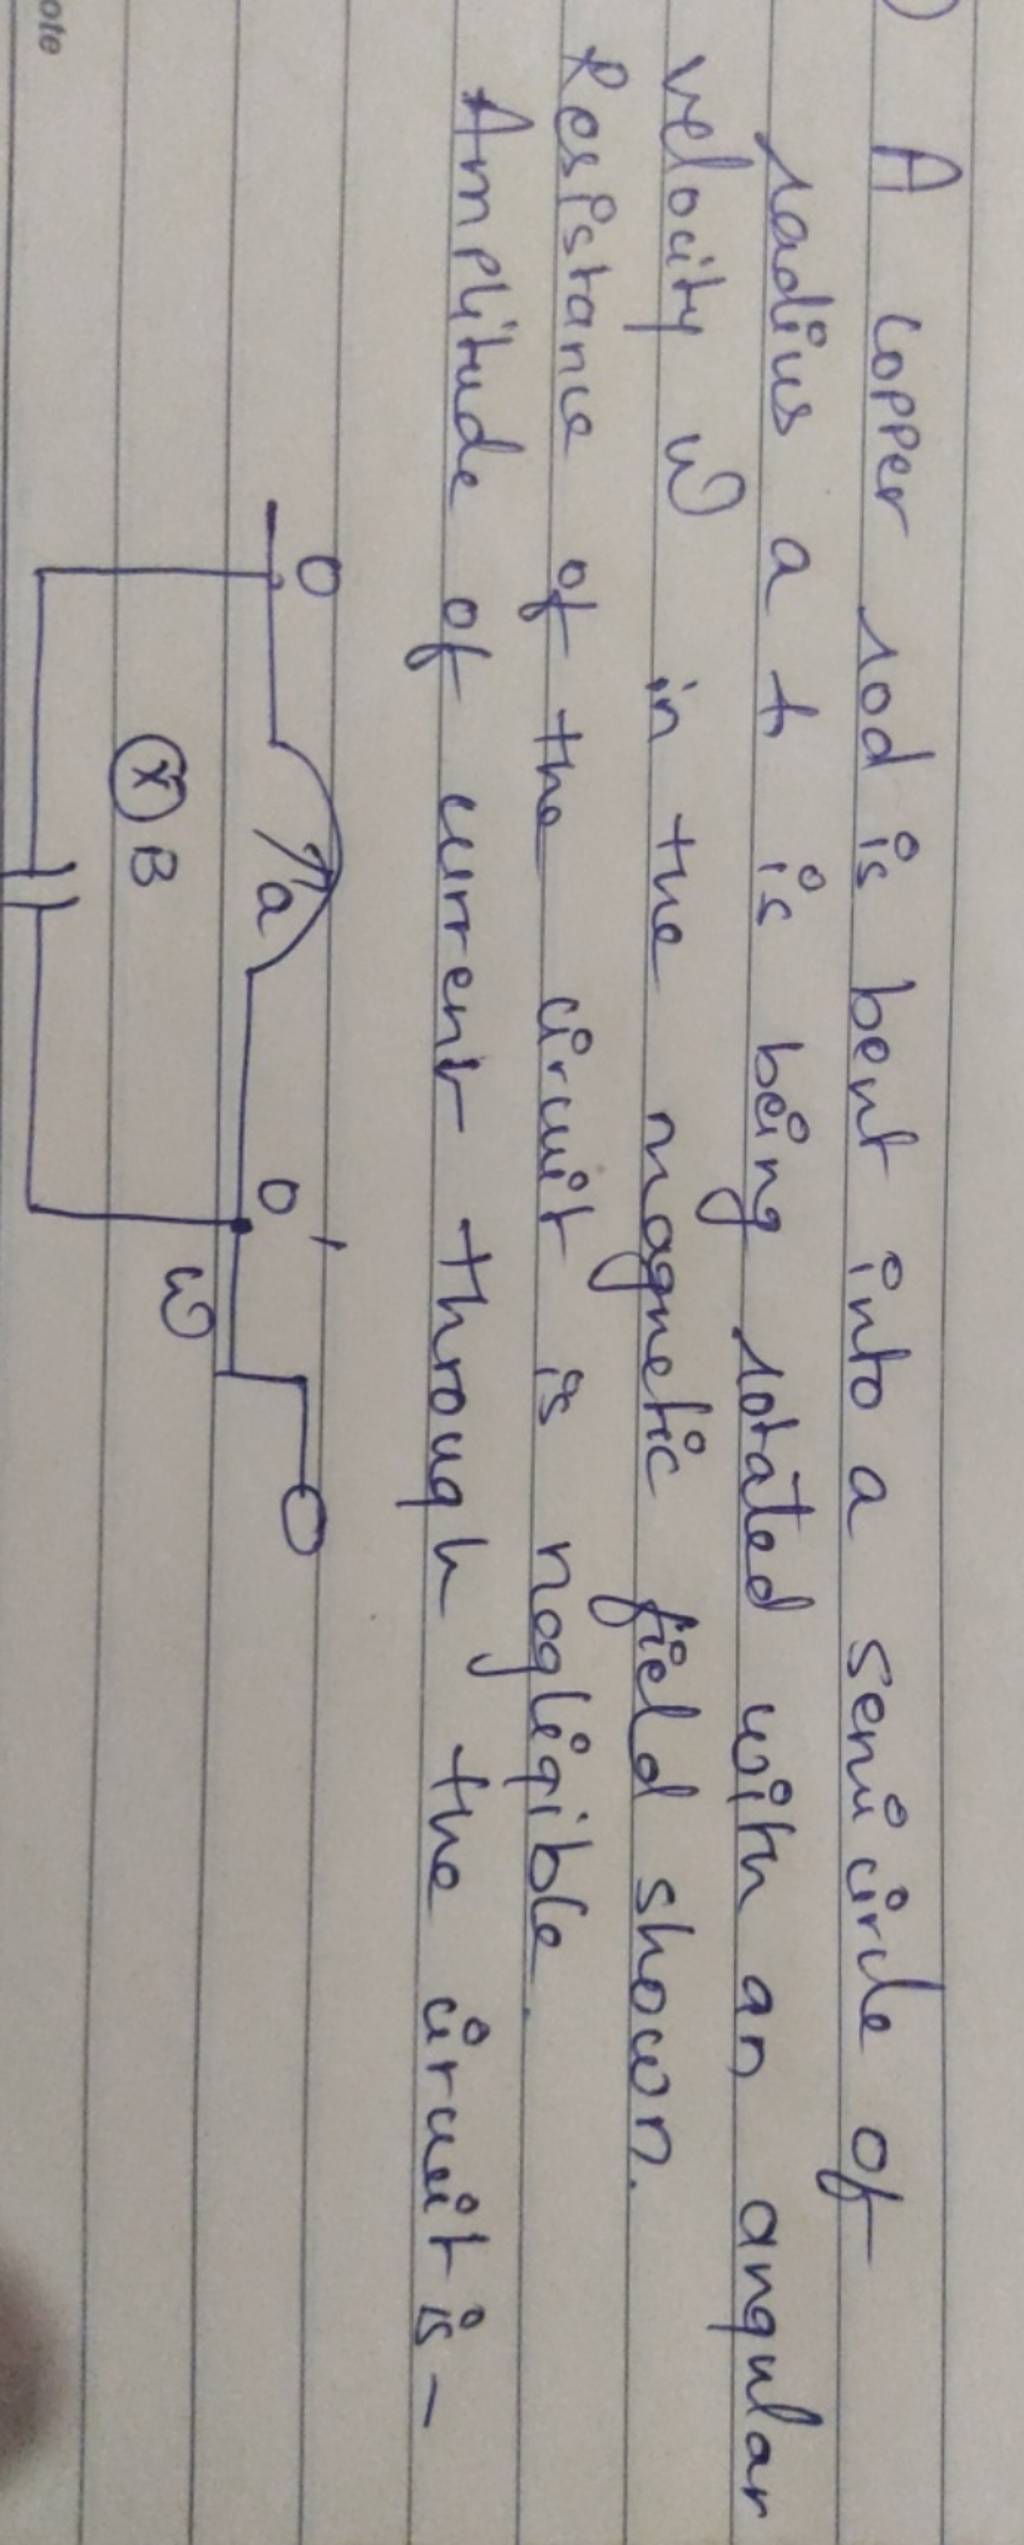 A copper rod is bent into a semicircle of
radius a t is being rotated with an angular
velocity ω in the magnetic field shown.
Resistance of the circuit is nogligible.
Amplitude of current through the circuit is -
O
a
O'
ω
ⓧ B
ote